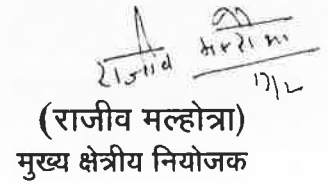 राजीव मल्होत्रा
17/2
(राजीव मल्होत्रा)
मुख्य क्षेत्रीय नियोजक